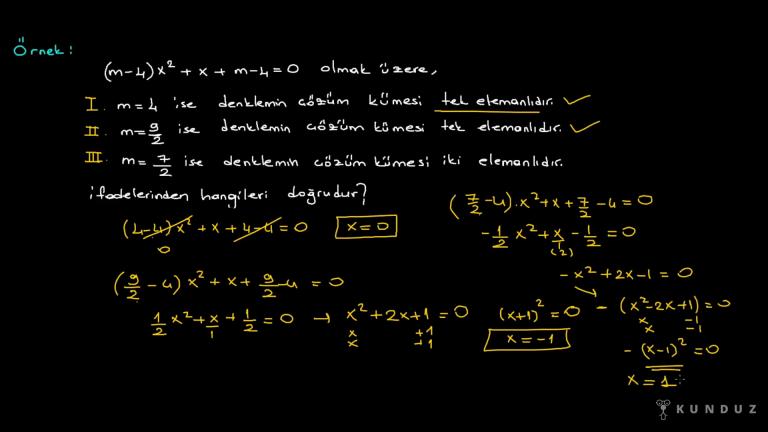 Örnek:
(m-4)x² + x + m-4 = 0 olmak üzere,
I. m = 4 ise denklemin çözüm kümesi tek elemanlıdır. ✓
II. m = 9/2 ise denklemin çözüm kümesi tek elemanlıdır. ✓
III. m = 7/2 ise denklemin çözüm kümesi iki elemanlıdır.
ifadelerinden hangileri doğrudur?
(4-4)x² + x + 4-4 = 0 x = 0
0
(9/2 - 4) x² + x + 9/2 - 4 = 0
1/2 x² + x/1 + 1/2 = 0 → x² + 2x + 1 = 0 (x+1)² = 0
x +1
x +1
x = -1
(7/2 - 4).x² + x + 7/2 - 4 = 0
-1/2 x² + x/1 - 1/2 = 0
(2)
-x² + 2x - 1 = 0
- (x² - 2x + 1) = 0
x -1
x -1
- (x-1)² = 0
x = 1
KUNDUZ